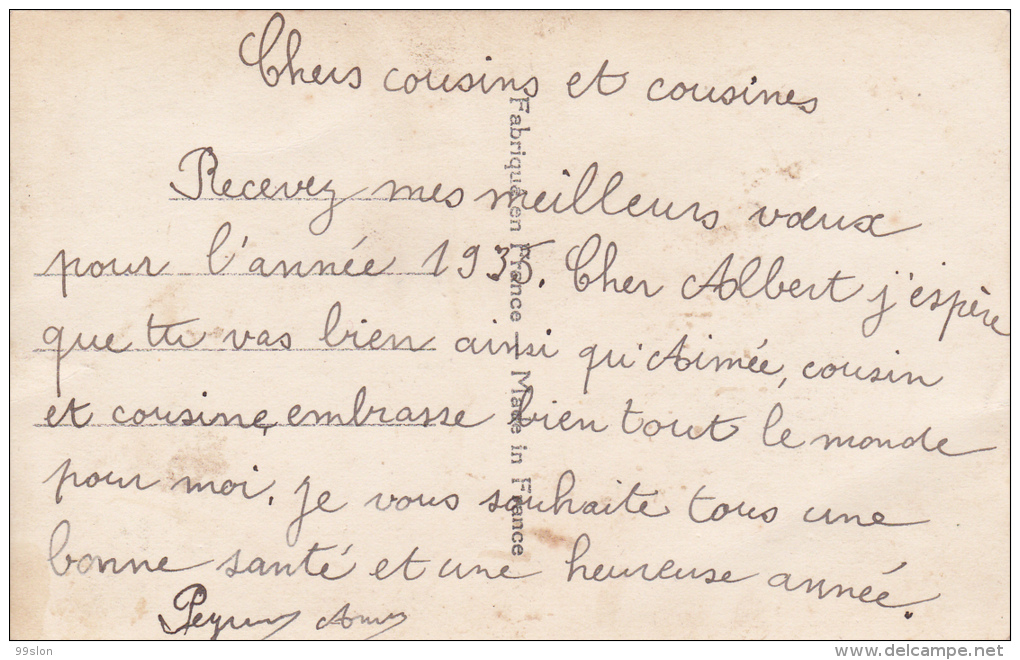 Chers cousins et cousines
Recevez mes meilleurs vœux
pour l'année 1935. Cher Albert j'espère
que tu vas bien ainsi qu'Aimée, cousin
et cousine, embrasse bien tout le monde
pour moi. je vous souhaite tous une
bonne santé et une heureuse année.
Fabriqué en France - Made in France
99slon
www.delcampe.net